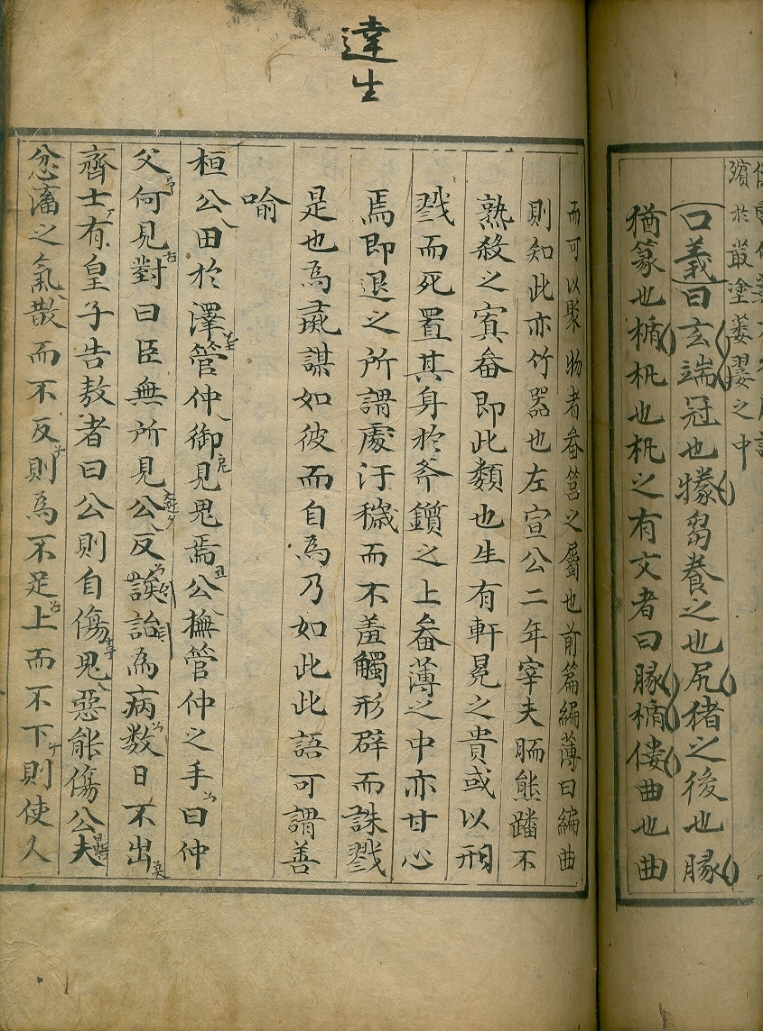 口義曰玄端冠也㹖芻養之也尻猪之後也䐁
猶篆也楯杌也杌之有文者曰䐁楯僂曲也曲
達生
而可以聚物者畚筥之屬也前篇編薄曰編曲
則知此亦竹器也左宣公二年宰夫胹熊蹯不
熟殺之寘畚即此類也生有軒冕之貴或以刑
戮而死置其身於斧鑕之上畚薄之中亦甘心
焉即退之所謂處汙穢而不羞觸形辟而誅戮
是也為彘謀如彼而自為乃如此此語可謂善
喻
桓公田於澤管仲御見鬼焉公撫管仲之手曰仲
父何見對曰臣無所見公反誒詒為病数日不出
齊士有皇子告敖者曰公則自傷鬼惡能傷公夫
忿滀之氣散而不反則為不足上而不下則使人